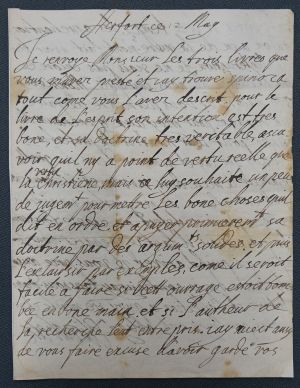 Herfort ce 12 May
Je renvoye Monsieur les trois livres que
vous m'aver presté et ay trouvé
tout come vous l'aver descrit, pour le
livre de l'Esprit son intention est tres
bone, et sa doctrine tres veritable, asca
voir qu'il ny a point de vertu reelle que
la vertu chrestiene, mais ie luy souhaite un peu
de jugemt pour mettre les bone choses qu'il
dit en ordre et apuyer premieremt sa
doctrine par des argum solides, et puis
l'exlaisir par exemples, come il seroit
facile a faire si cest ouvrage estoit tom
bée en bone main, et si l'autheur de
la recherche l'eut entrepris. iay
de vous faire excuse d'avoir gardé vos